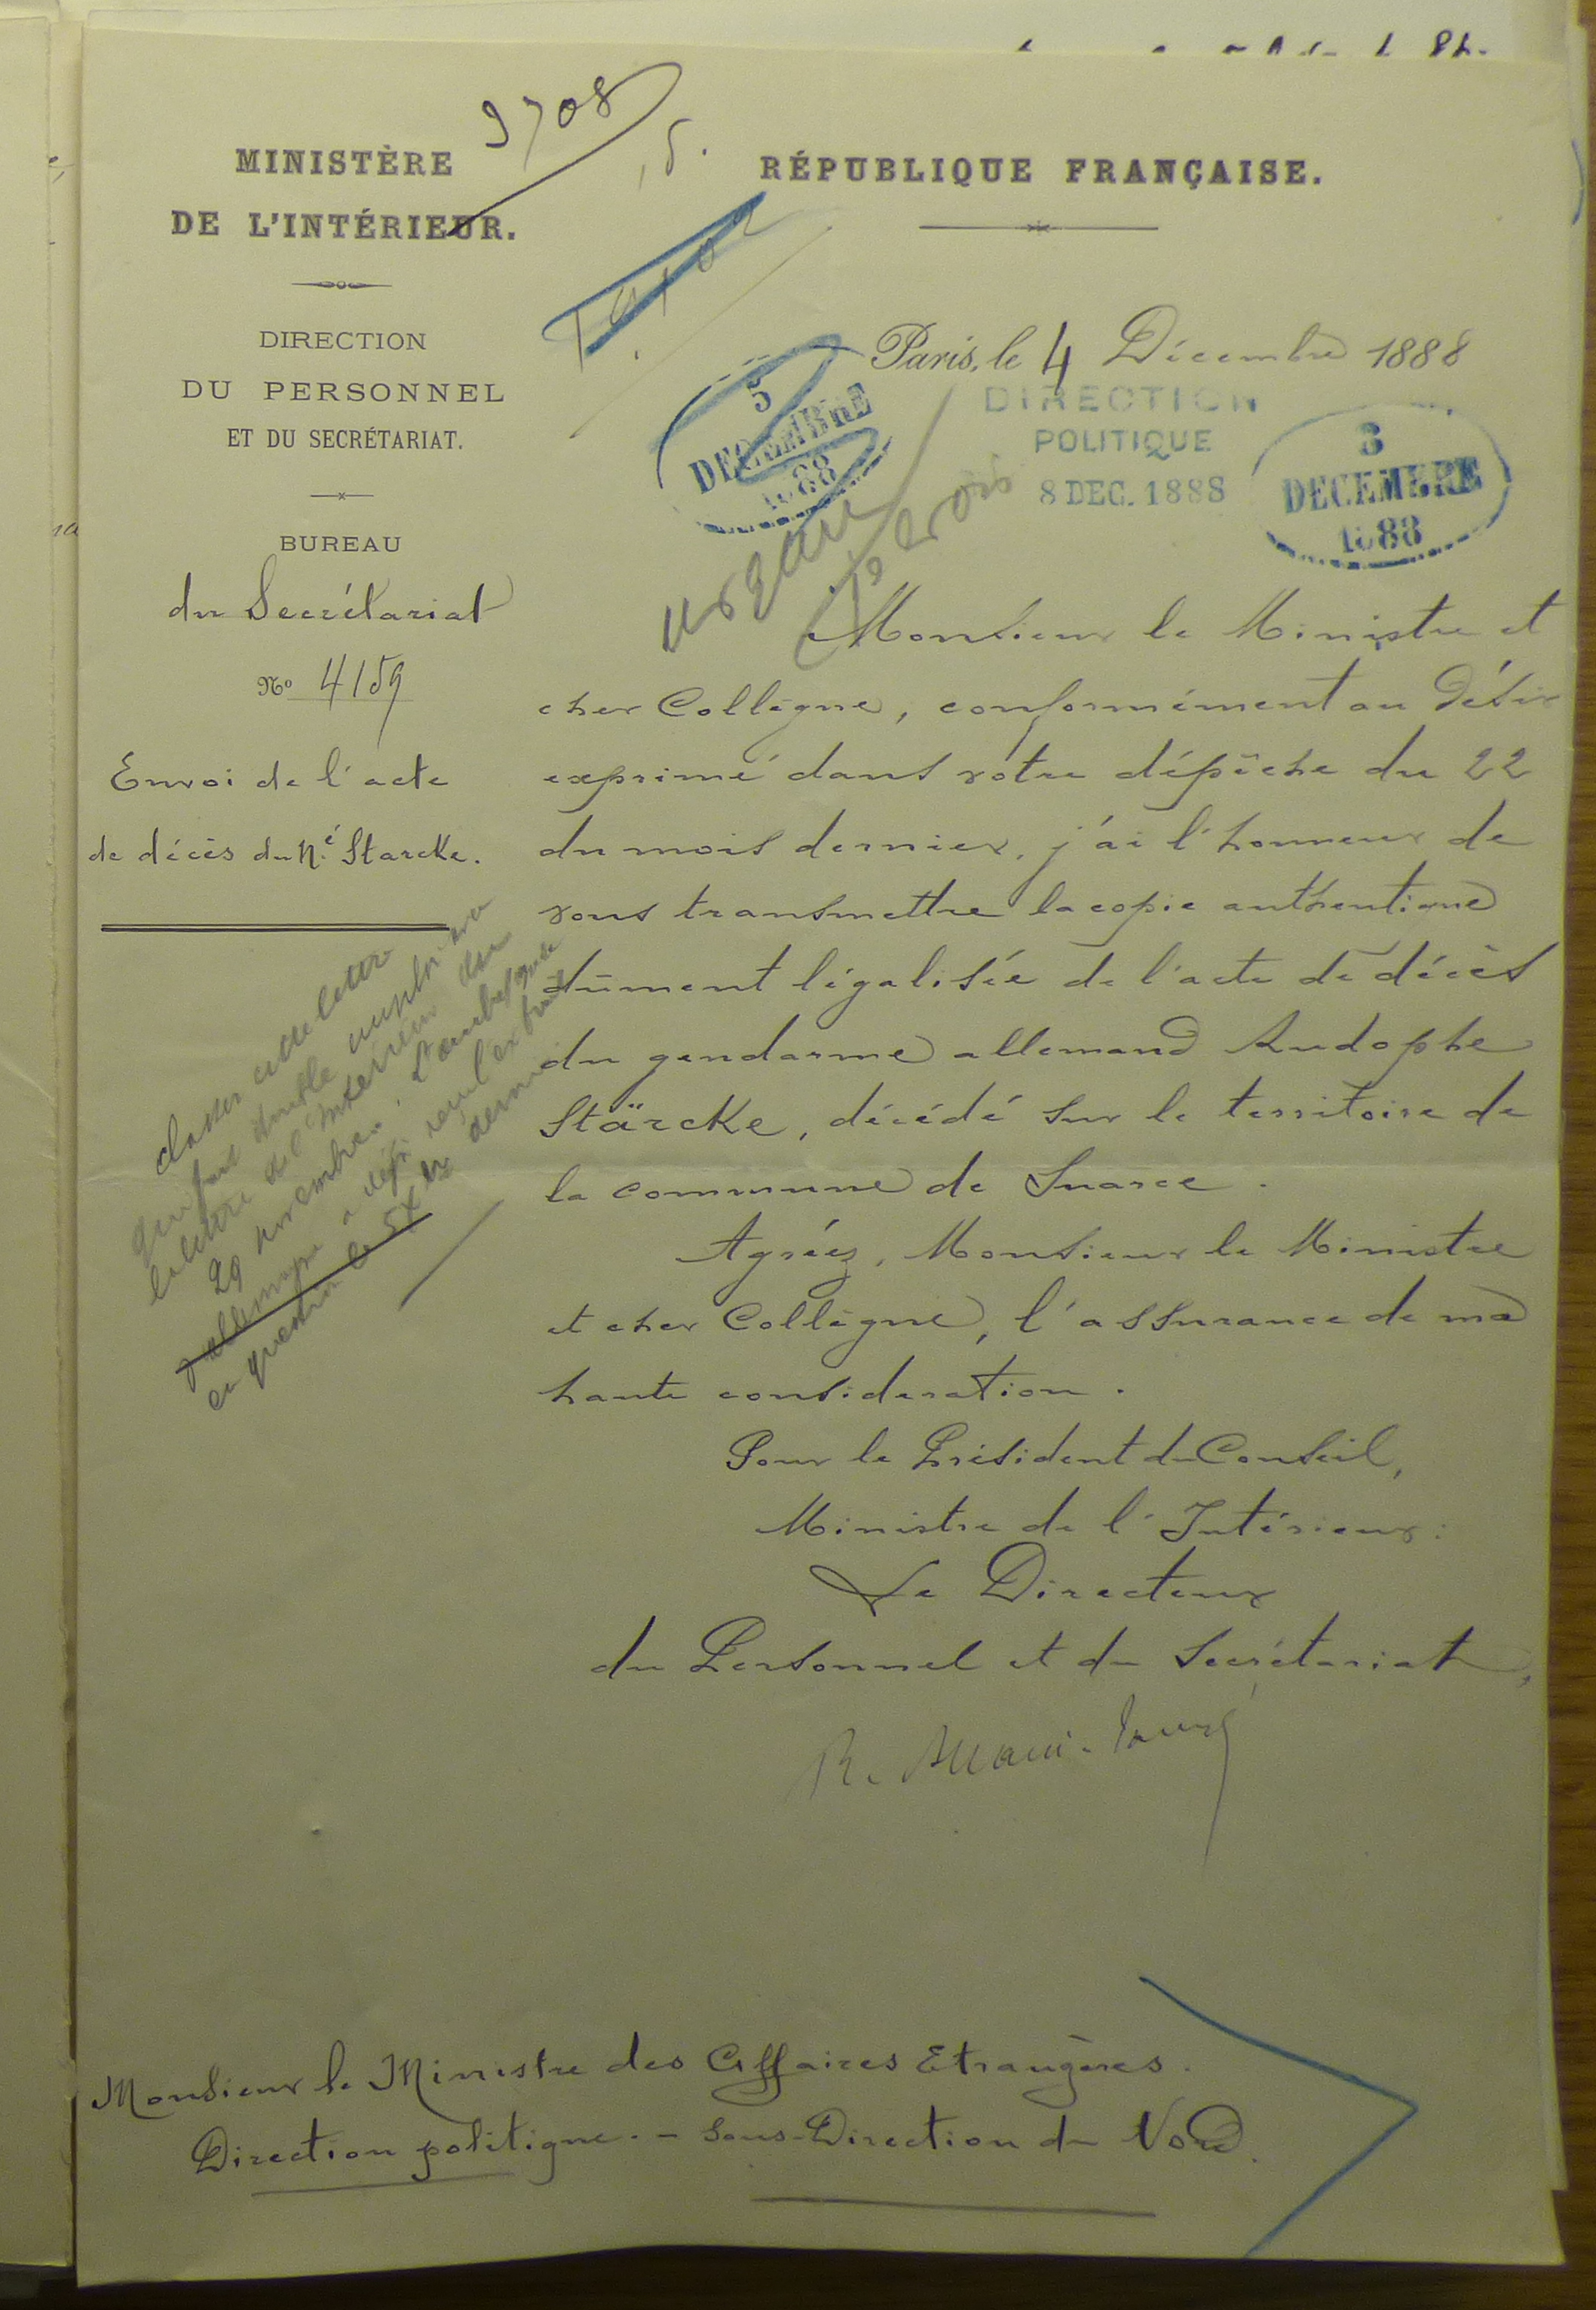 9708
MINISTÈRE
DE L'INTÉRIEUR.
RÉPUBLIQUE FRANÇAISE.
DIRECTION
DU PERSONNEL
ET DU SECRÉTARIAT.
BUREAU
du Secrétariat
No 4159
Envoi de l'acte
de décès du Né Starcke.
Paris, le 4 Décembre 1888
5
DECEMBRE
1888
DIRECTION
POLITIQUE
8 DEC. 1888
8
DECEMBRE
1888
Monsieur le Ministre et
cher Collègue, conformément au désir
exprimé dans votre dépêche du 22
du mois dernier, j'ai l'honneur de
vous transmettre la copie authentique
dûment légalisée de l'acte de décès
du gendarme allemand Rudophe
Stärcke, décédé sur le territoire de
la commune de Suarce.
Agréez, Monsieur le Ministre
et cher Collègue, l'assurance de ma
haute consideration.
Pour le Président du Conseil,
Ministre de l'Intérieur:
Le Directeur
du Personnel et du Secrétariat,
classer cette lettre
qui fait double emploi avec
la lettre de l'Intérieur du
29 novembre. L'ambassade
d'allemagne a déjà reçu l'extrait
en question le 5 Xbre dernier
Monsieur le Ministre des Affaires Etrangères.
Direction politique. - Sous-Direction du Nord.